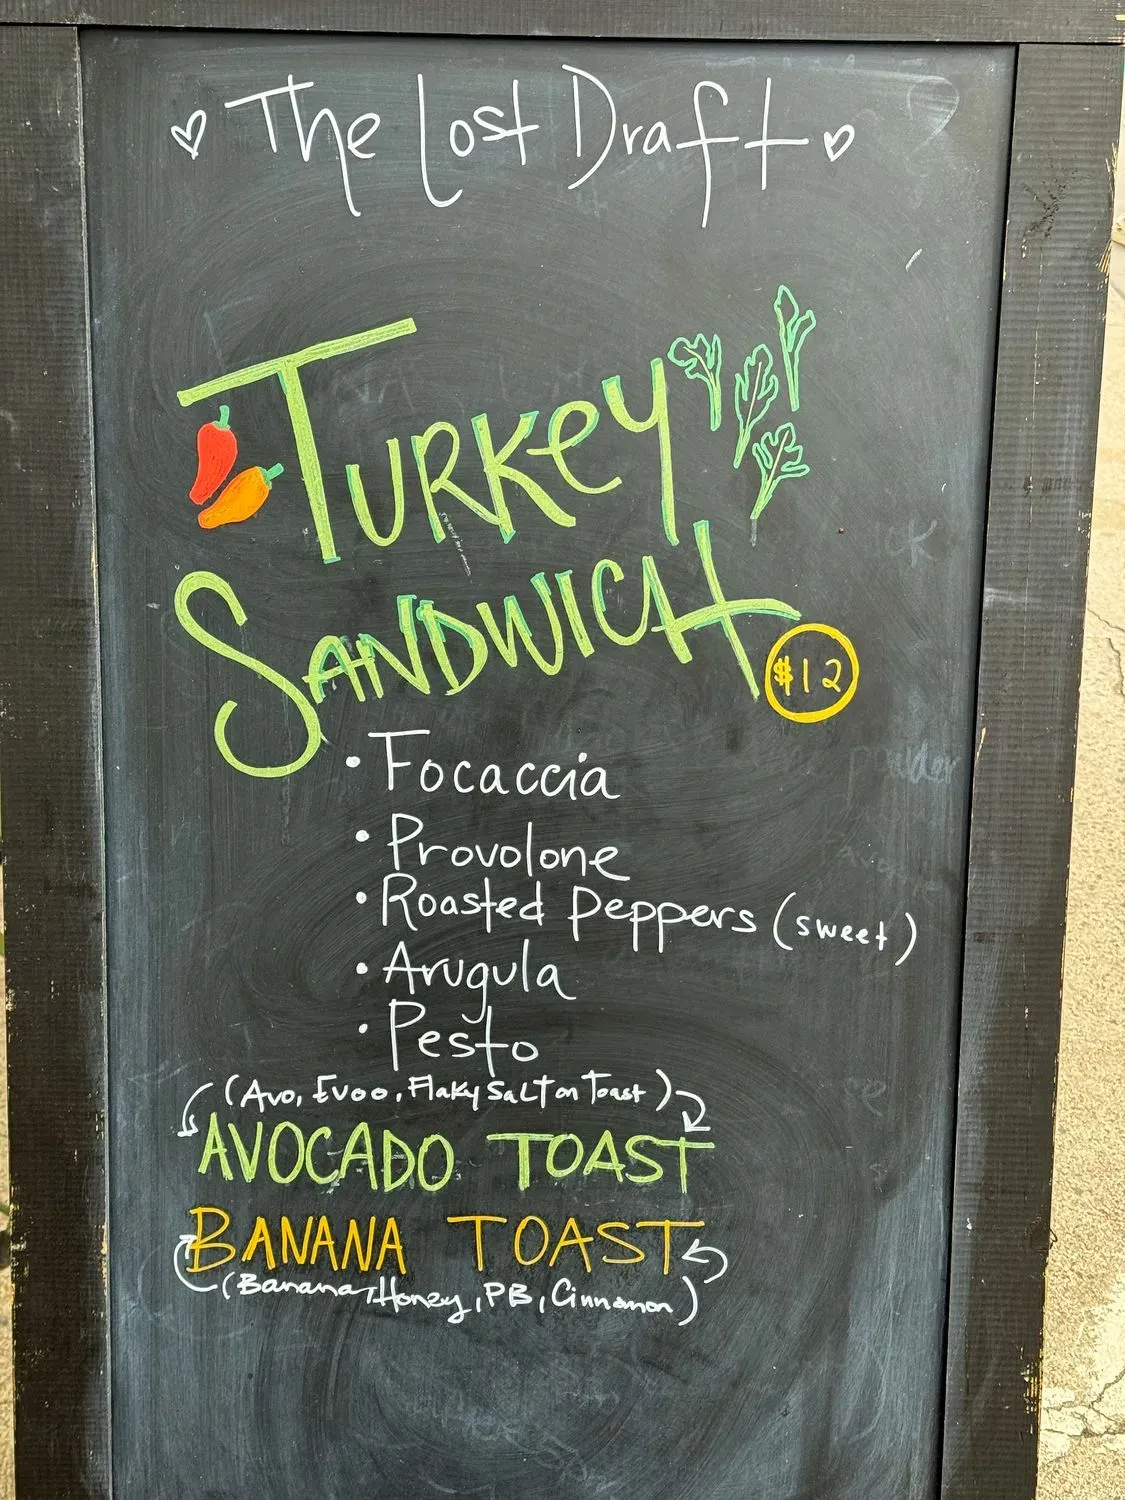 The Lost Draft
TURKEY
SANDWICH
$12
• Focaccia
• Provolone
• Roasted Peppers (sweet)
• Arugula
• Pesto
(Avo, Evoo, Flaky Salt on Toast)
AVOCADO TOAST
BANANA TOAST
(Banana, Honey, PB, Cinnamon)